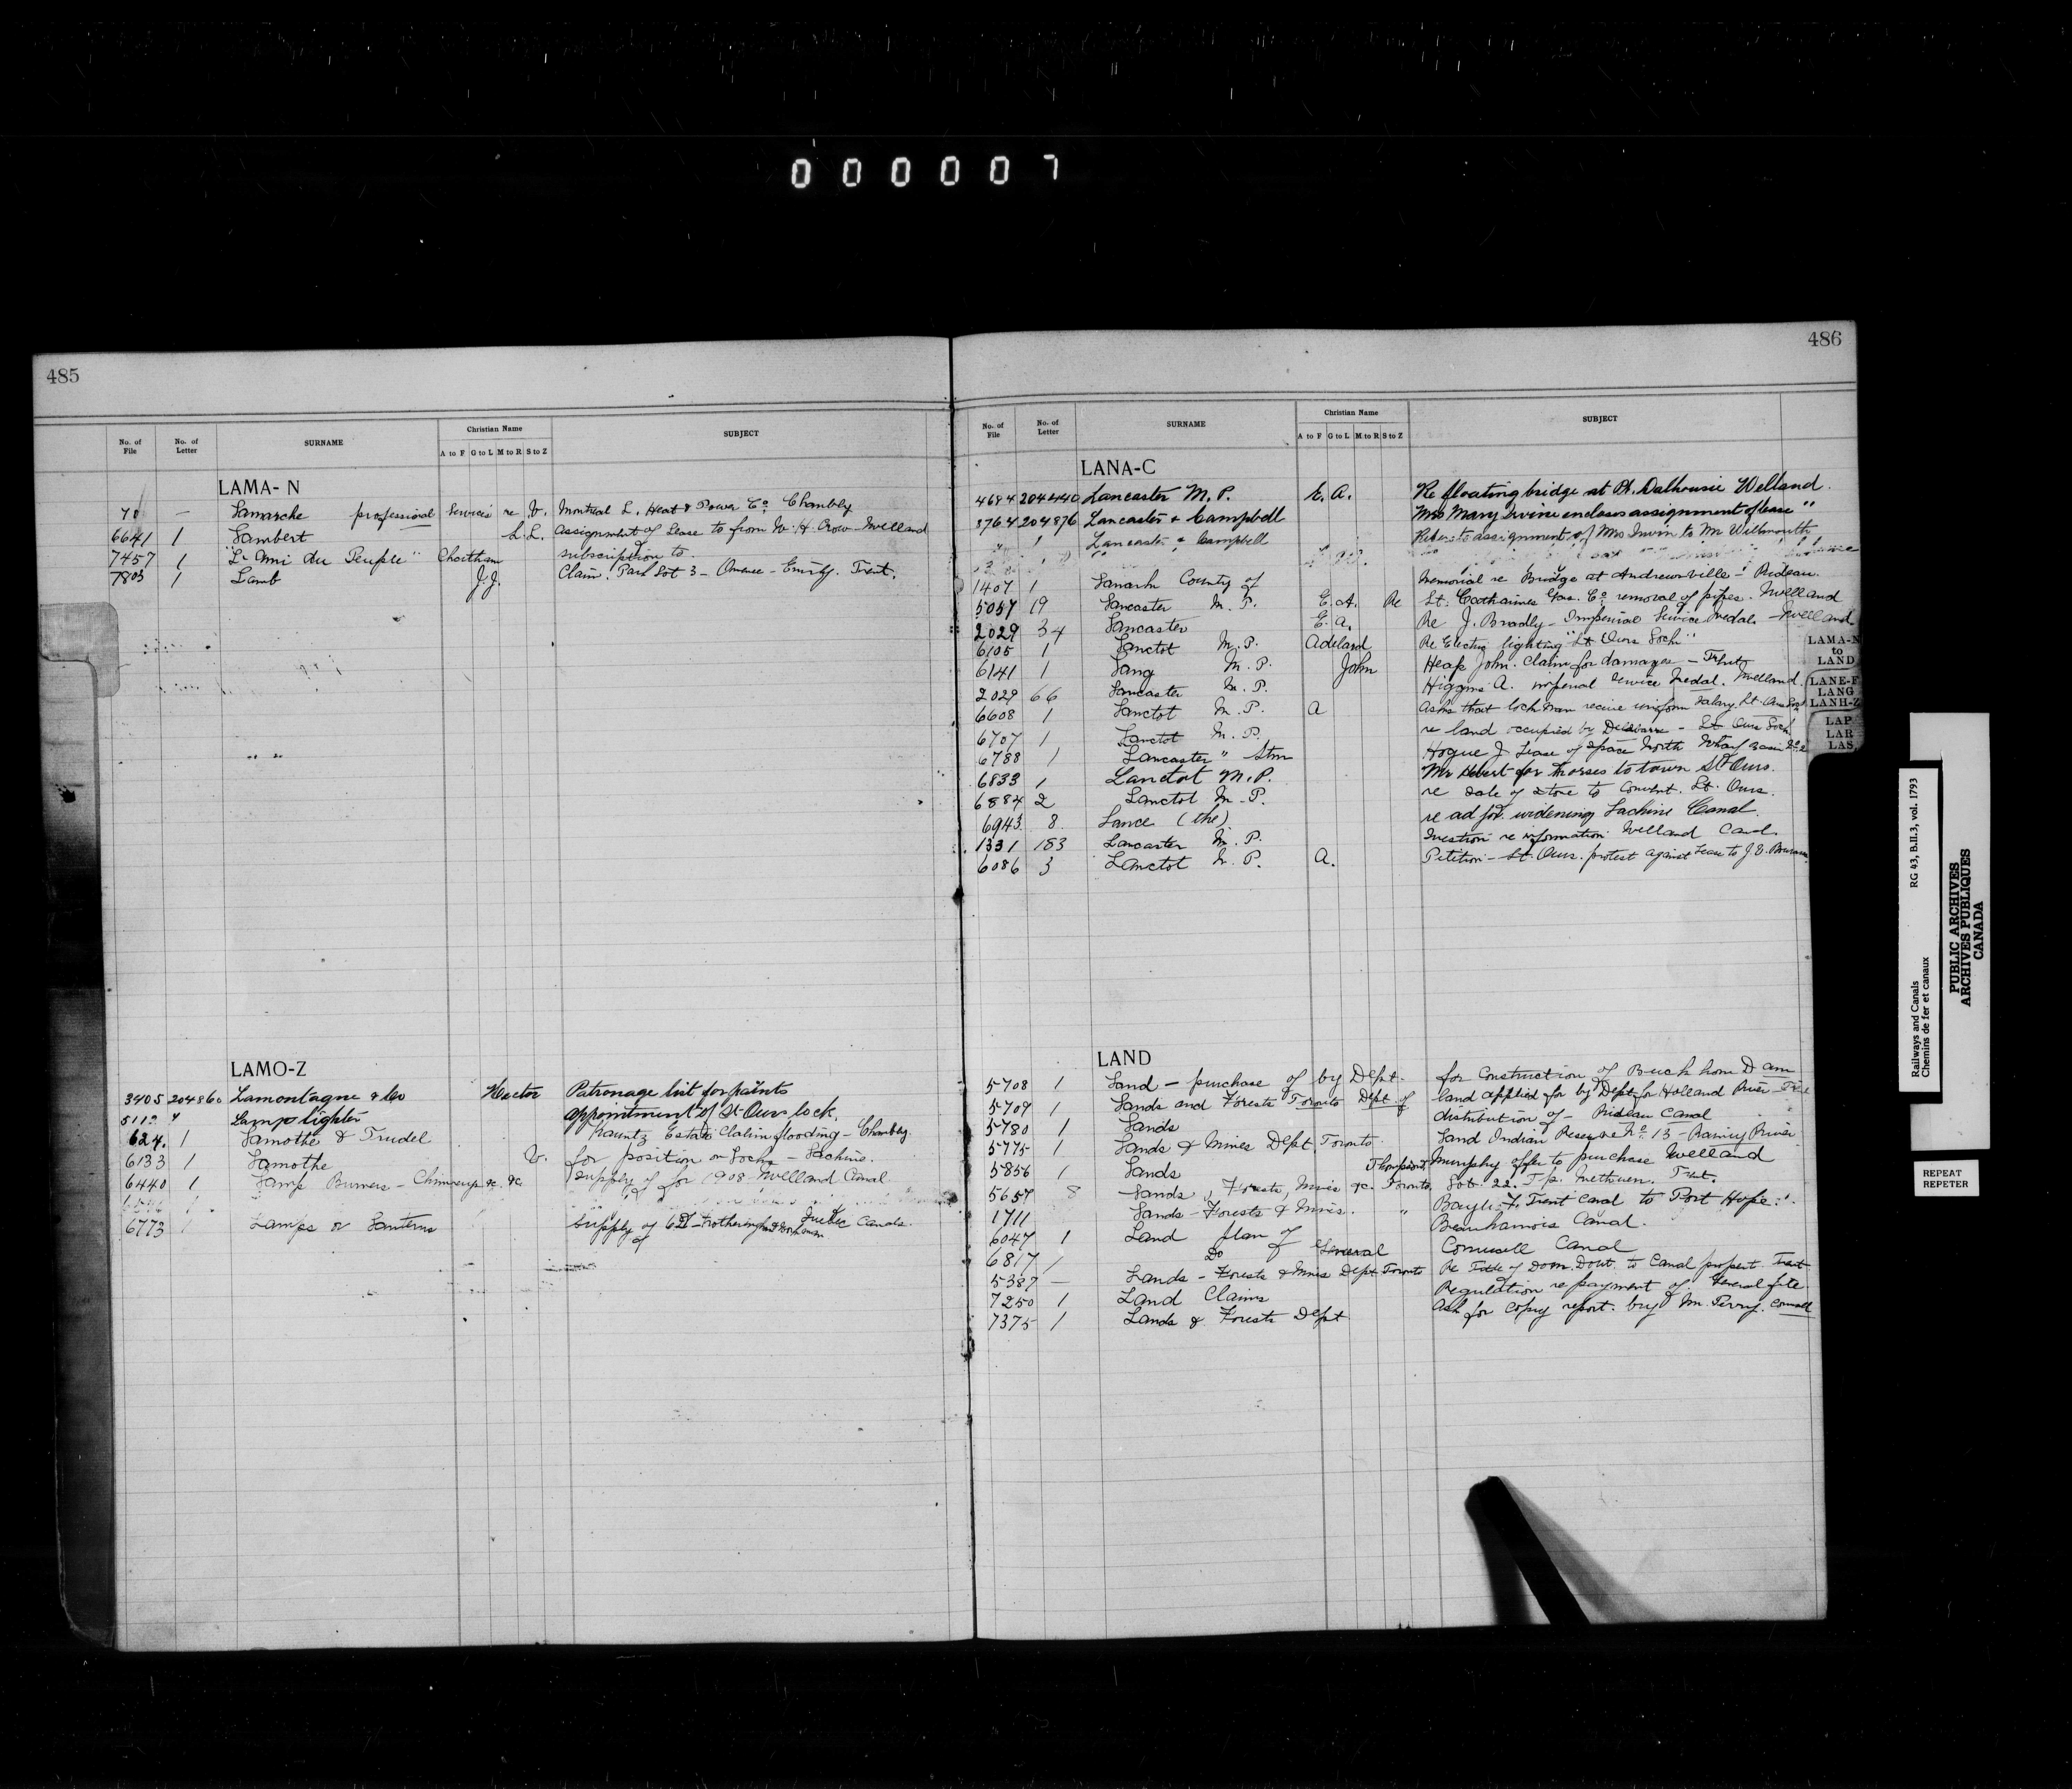 0 0 0 0 0 7
485
No. of File No. of Letter SURNAME Christian Name SUBJECT
A to F G to L M to R S to Z
LAMA-N
70 — Lamarche professional services re V. Montreal L. Heat & Power Co Chambly
6641 1 Lambert L.L. assignment of Lease to from W.H. Crow - Welland
7457 1 "L'Ami du Peuple" Chatham subscription to
7803 1 Lamb J.J. Claim. Park Lot 3 - Omemee - Emily. Trent.
LAMO-Z
3405 204860 Lamontagne & Co Hector Patronage list for paints
Lamp lighter appointment of St Ours lock.
624. 1 Lamothe & Trudel Kuntz Estate Claim flooding - Chambly.
6133 1 Lamothe V. for position on Locks - Lachine.
6440 1 Lamp Burners - Chimneys &c. &c supply of for 1908 Welland Canal
6773 1 Lamps & Lanterns Supply of Quebec Canals.
486
No. of File No. of Letter SURNAME Christian Name SUBJECT
A to F G to L M to R S to Z
LANA-C
4684 204440 Lancaster M.P. E.A. Re floating bridge at Pt. Dalhousie Welland.
3764 204876 Lancaster & Campbell Mrs Mary Irvine encloses assignment of lease "
" " Lancaster & Campbell Refers to assignment of Mrs Irvin to Mr Willmouth
1407 1 Lanark County of Memorial re Bridge at Andrewsville - Rideau.
5057 19 Lancaster M.P. E.A. Re St. Catharines Gas. Co removal of pipes. Welland
2029 34 Lancaster E.A. Re J. Bradly - Imperial Service Medal - Welland
6105 1 Lanctot M.P. Adelard Re Electric lighting "St Ours Lock"
6141 1 Lang M.P. John Heap John. Claim for damages - Trent
2029 66 Lancaster M.P. Higgins A. imperial Service Medal. Welland.
6608 1 Lanctot M.P. A Asks that lock man receive uniform salary. St. Ours Lock
6707 1 Lanctot M.P. re land occupied by - St Ours Lock
6788 1 Lancaster " Stm Hogue J. Lease of space North Wharf Basin No 2
6833 1 Lanctot M.P. Mr Hebert for horses to town St Ours.
6884 2 Lanctot M.P. re sale of stone to Convent. St. Ours.
6943 8 Lance (the) re ad for widening Lachine Canal
1331 183 Lancaster M.P. Question re information Welland Canal.
6086 3 Lanctot M.P. A. Petition - St. Ours. protest against Lease to J.E.
LAND
5708 1 Land - purchase of by Dept. for Construction of Buckhorn Dam
5709 1 Lands and Forests Toronto Dept of land applied for by Dept for Holland River -
5780 1 Lands distribution of - Rideau Canal
5775 1 Lands & Mines Dept. Toronto. Land Indian Reserve No 15 - Rainy River
5856 1 Lands Thompson, Murphy offer to purchase Welland
5657 8 Lands, Forests, Mines &c. Toronto Lot. 22. Tp. Methuen. Trent.
1711 Lands - Forests & Mines. " Baylis F. Trent Canal to Port Hope.
6047 1 Land plan of Beauharnois Canal.
6817 1 Do General Cornwall Canal
5387 — Lands - Forests & Mines Dept Toronto Re Title of Dom. Govt. to Canal propert. Trent
7250 1 Land Claims Regulation re payment of General file
7375 1 Lands & Forests Dept Ask for copy report. by Mr. Perry. Cornwall
LAMA-N
to
LAND
LANE-F
LANG
LANH-Z
LAP
LAR
LAS
Railways and Canals RG 43, B.II.3, vol. 1793
Chemins de fer et canaux
PUBLIC ARCHIVES
ARCHIVES PUBLIQUES
CANADA
REPEAT
REPETER